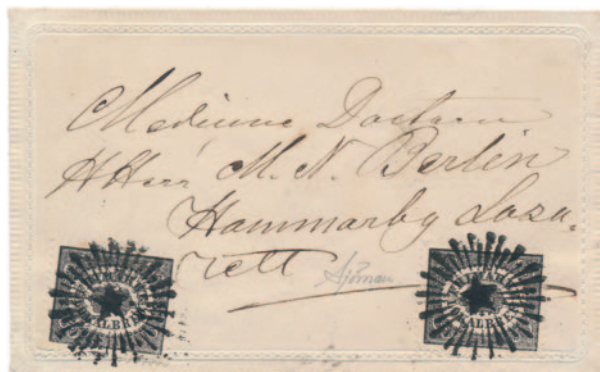 Medicine Doctorn
HHerr M. N. Berlin
Hammarby Laza-
rett
Sjöman